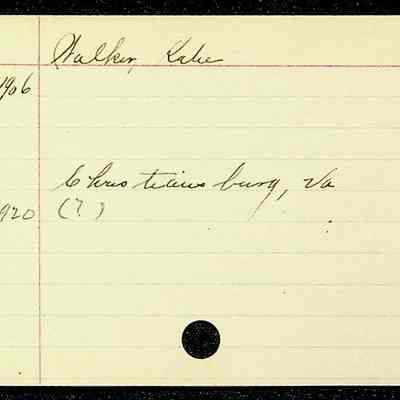 Walker, Katie
1906
Christiansburg, Va
920 (?)